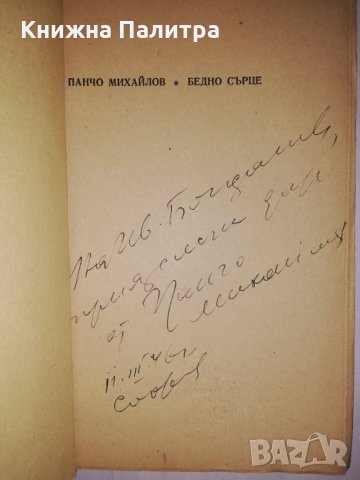 Книжна Палитра
ПАНЧО МИХАЙЛОВ • БЕДНО СЪРЦЕ
На Ив. Богданов,
приятелски дар
от Панчо
Михайлов
11.III.46 г.
София
BAZAR
bg